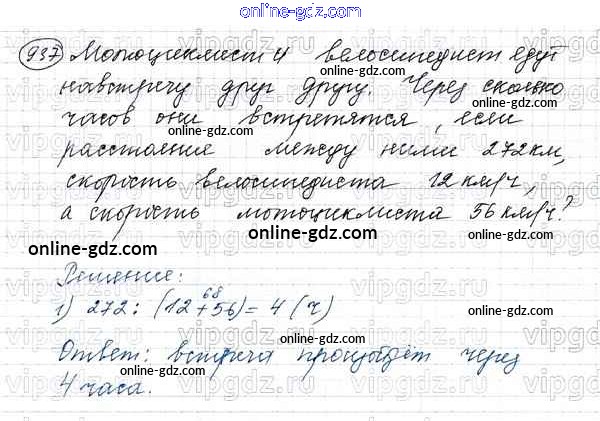 online-gdz.com
937 Мотоциклист и велосипедист едут
online-gdz.com
навстречу друг другу. Через сколько
online-gdz.com
часов они встретятся, если
online-gdz.com
расстояние между ними 272 км,
online-gdz.com
скорость велосипедиста 12 км/ч,
online-gdz.com
а скорость мотоциклиста 56 км/ч?
online-gdz.com online-gdz.com
vipgdz.ru vipgdz.ru
Решение:
68
1) 272 : (12 + 56) = 4 (ч)
online-gdz.com
Ответ: встреча произойдёт через
4 часа.
online-gdz.com